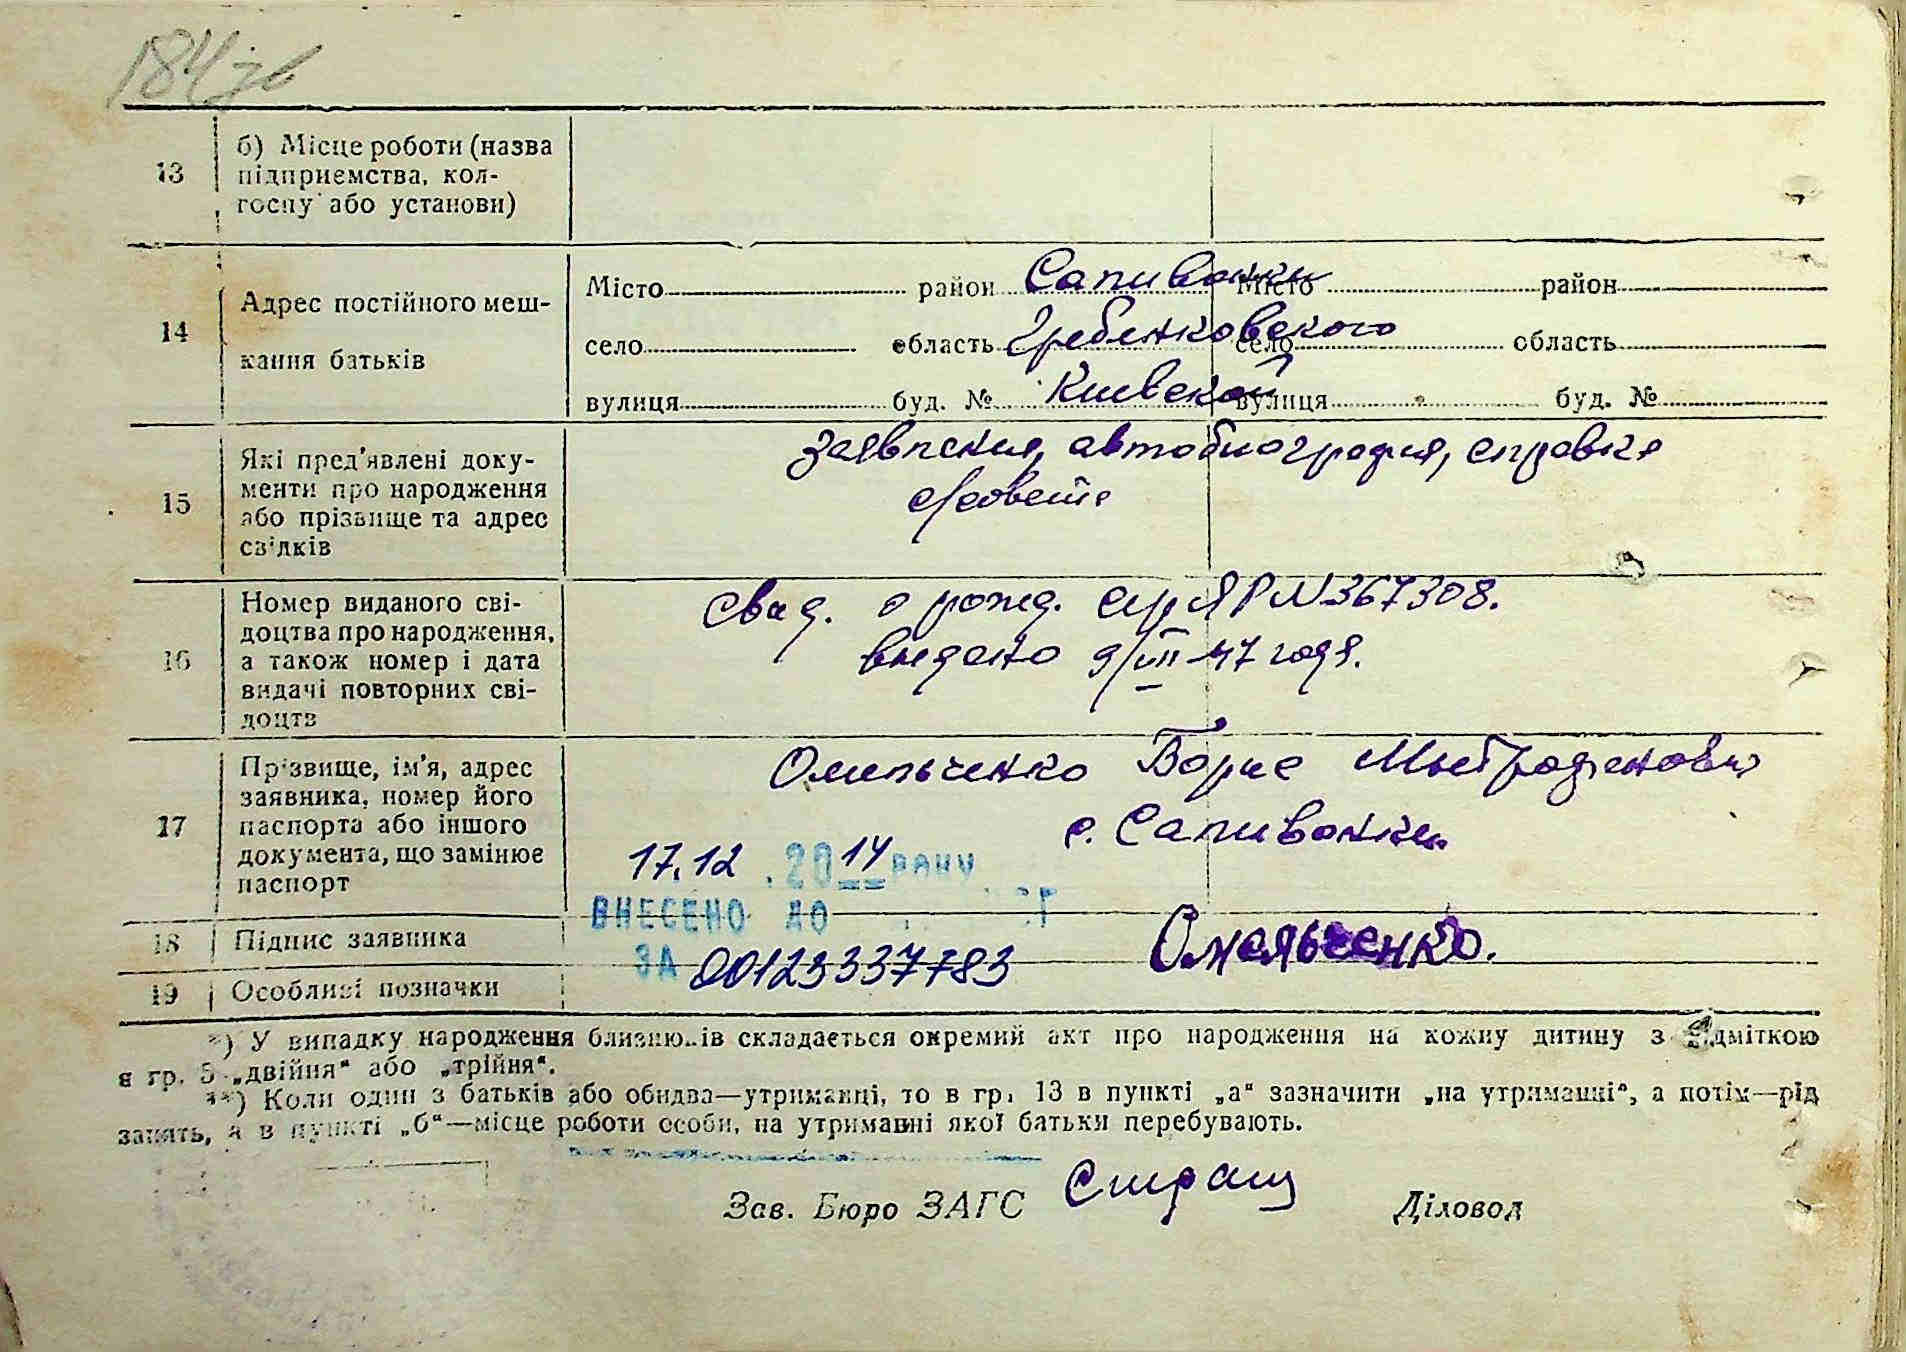 184 зв
13
б) Місце роботи (назва
підприємства, кол-
госпу або установи)
14
Адрес постійного меш-
кання батьків
Місто район Саливонки Місто район
село область Гребенковского село область
вулиця буд. № Киевской вулиця буд. №
15
Які пред'явлені доку-
менти про народження
або прізвище та адрес
свідків
заявления, автобиография, справка
с/совета
16
Номер виданого сві-
доцтва про народження,
а також номер і дата
видачі повторних сві-
доцтв
Свид. о рожд. сер ЯР N 367308.
выдано 9/VII-47 года.
17
Прізвище, ім'я, адрес
заявника, номер його
паспорта або іншого
документа, що замінює
паспорт
Омельченко Борис Митрофанович
с. Саливонки
17.12.2014 року
ВНЕСЕНО ДО
18
Підпис заявника
Омельченко.
ЗА 00123337783
19
Особливі позначки
*) У випадку народження близнюків складається окремий акт про народження на кожну дитину з відміткою
в гр. 5 „двійня“ або „трійня“.
**) Коли один з батьків або обидва—утриманці, то в гр. 13 в пункті „а“ зазначити „на утриманні“, а потім—рід
занять, а в пункті „б“—місце роботи особи, на утриманні якої батьки перебувають.
Зав. Бюро ЗАГС Страш Діловод